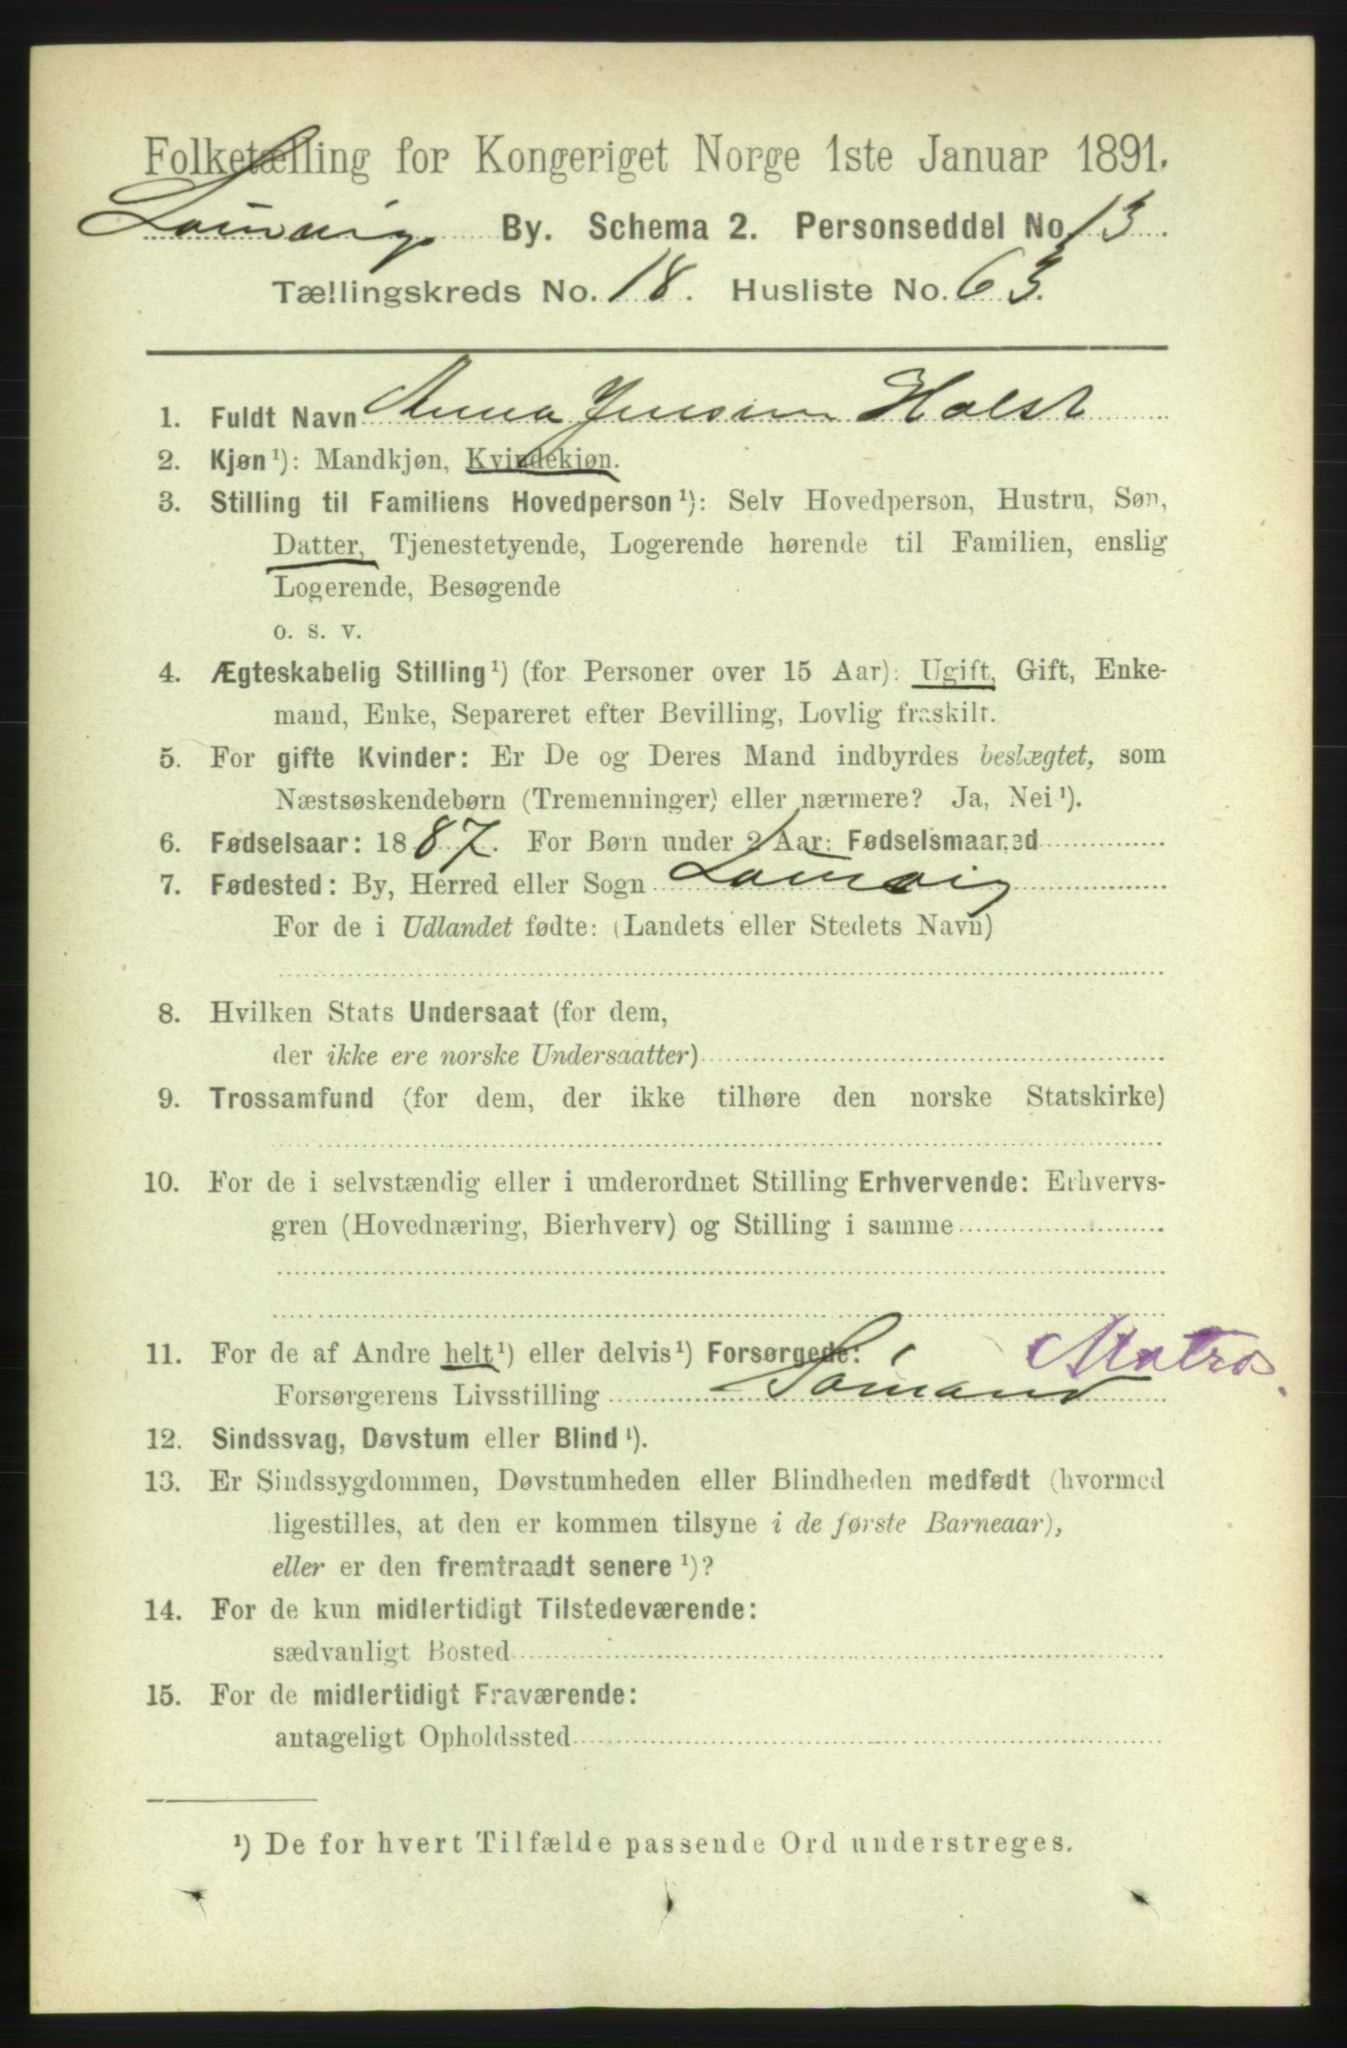 Folketælling for Kongeriget Norge 1ste Januar 1891.
Laurvig By. Schema 2. Personseddel No. 13.
Tællingskreds No. 18. Husliste No. 63.
1. Fuldt Navn Anna Jensine Holst
2. Kjøn ¹): Mandkjøn, Kvindekjøn.
3. Stilling til Familiens Hovedperson ¹): Selv Hovedperson, Hustru, Søn,
Datter, Tjenestetyende, Logerende hørende til Familien, enslig
Logerende, Besøgende
o. s. v.
4. Ægteskabelig Stilling ¹) (for Personer over 15 Aar): Ugift, Gift, Enke-
mand, Enke, Separeret efter Bevilling, Lovlig fraskilt.
5. For gifte Kvinder: Er De og Deres Mand indbyrdes beslægtet, som
Næstsøskendebørn (Tremenninger) eller nærmere? Ja, Nei ¹).
6. Fødselsaar: 1887. For Børn under 2 Aar: Fødselsmaaned
7. Fødested: By, Herred eller Sogn Laurvig
For de i Udlandet fødte: (Landets eller Stedets Navn)
8. Hvilken Stats Undersaat (for dem,
der ikke ere norske Undersaatter)
9. Trossamfund (for dem, der ikke tilhøre den norske Statskirke)
10. For de i selvstændig eller i underordnet Stilling Erhvervende: Erhvervs-
gren (Hovednæring, Bierhverv) og Stilling i samme
11. For de af Andre helt ¹) eller delvis ¹) Forsørgede: Matros.
Forsørgerens Livsstilling Sømand
12. Sindssvag, Døvstum eller Blind ¹).
13. Er Sindssygdommen, Døvstumheden eller Blindheden medfødt (hvormed
ligestilles, at den er kommen tilsyne i de første Barneaar),
eller er den fremtraadt senere ¹)?
14. For de kun midlertidigt Tilstedeværende:
sædvanligt Bosted
15. For de midlertidigt Fraværende:
antageligt Opholdssted
¹) De for hvert Tilfælde passende Ord understreges.